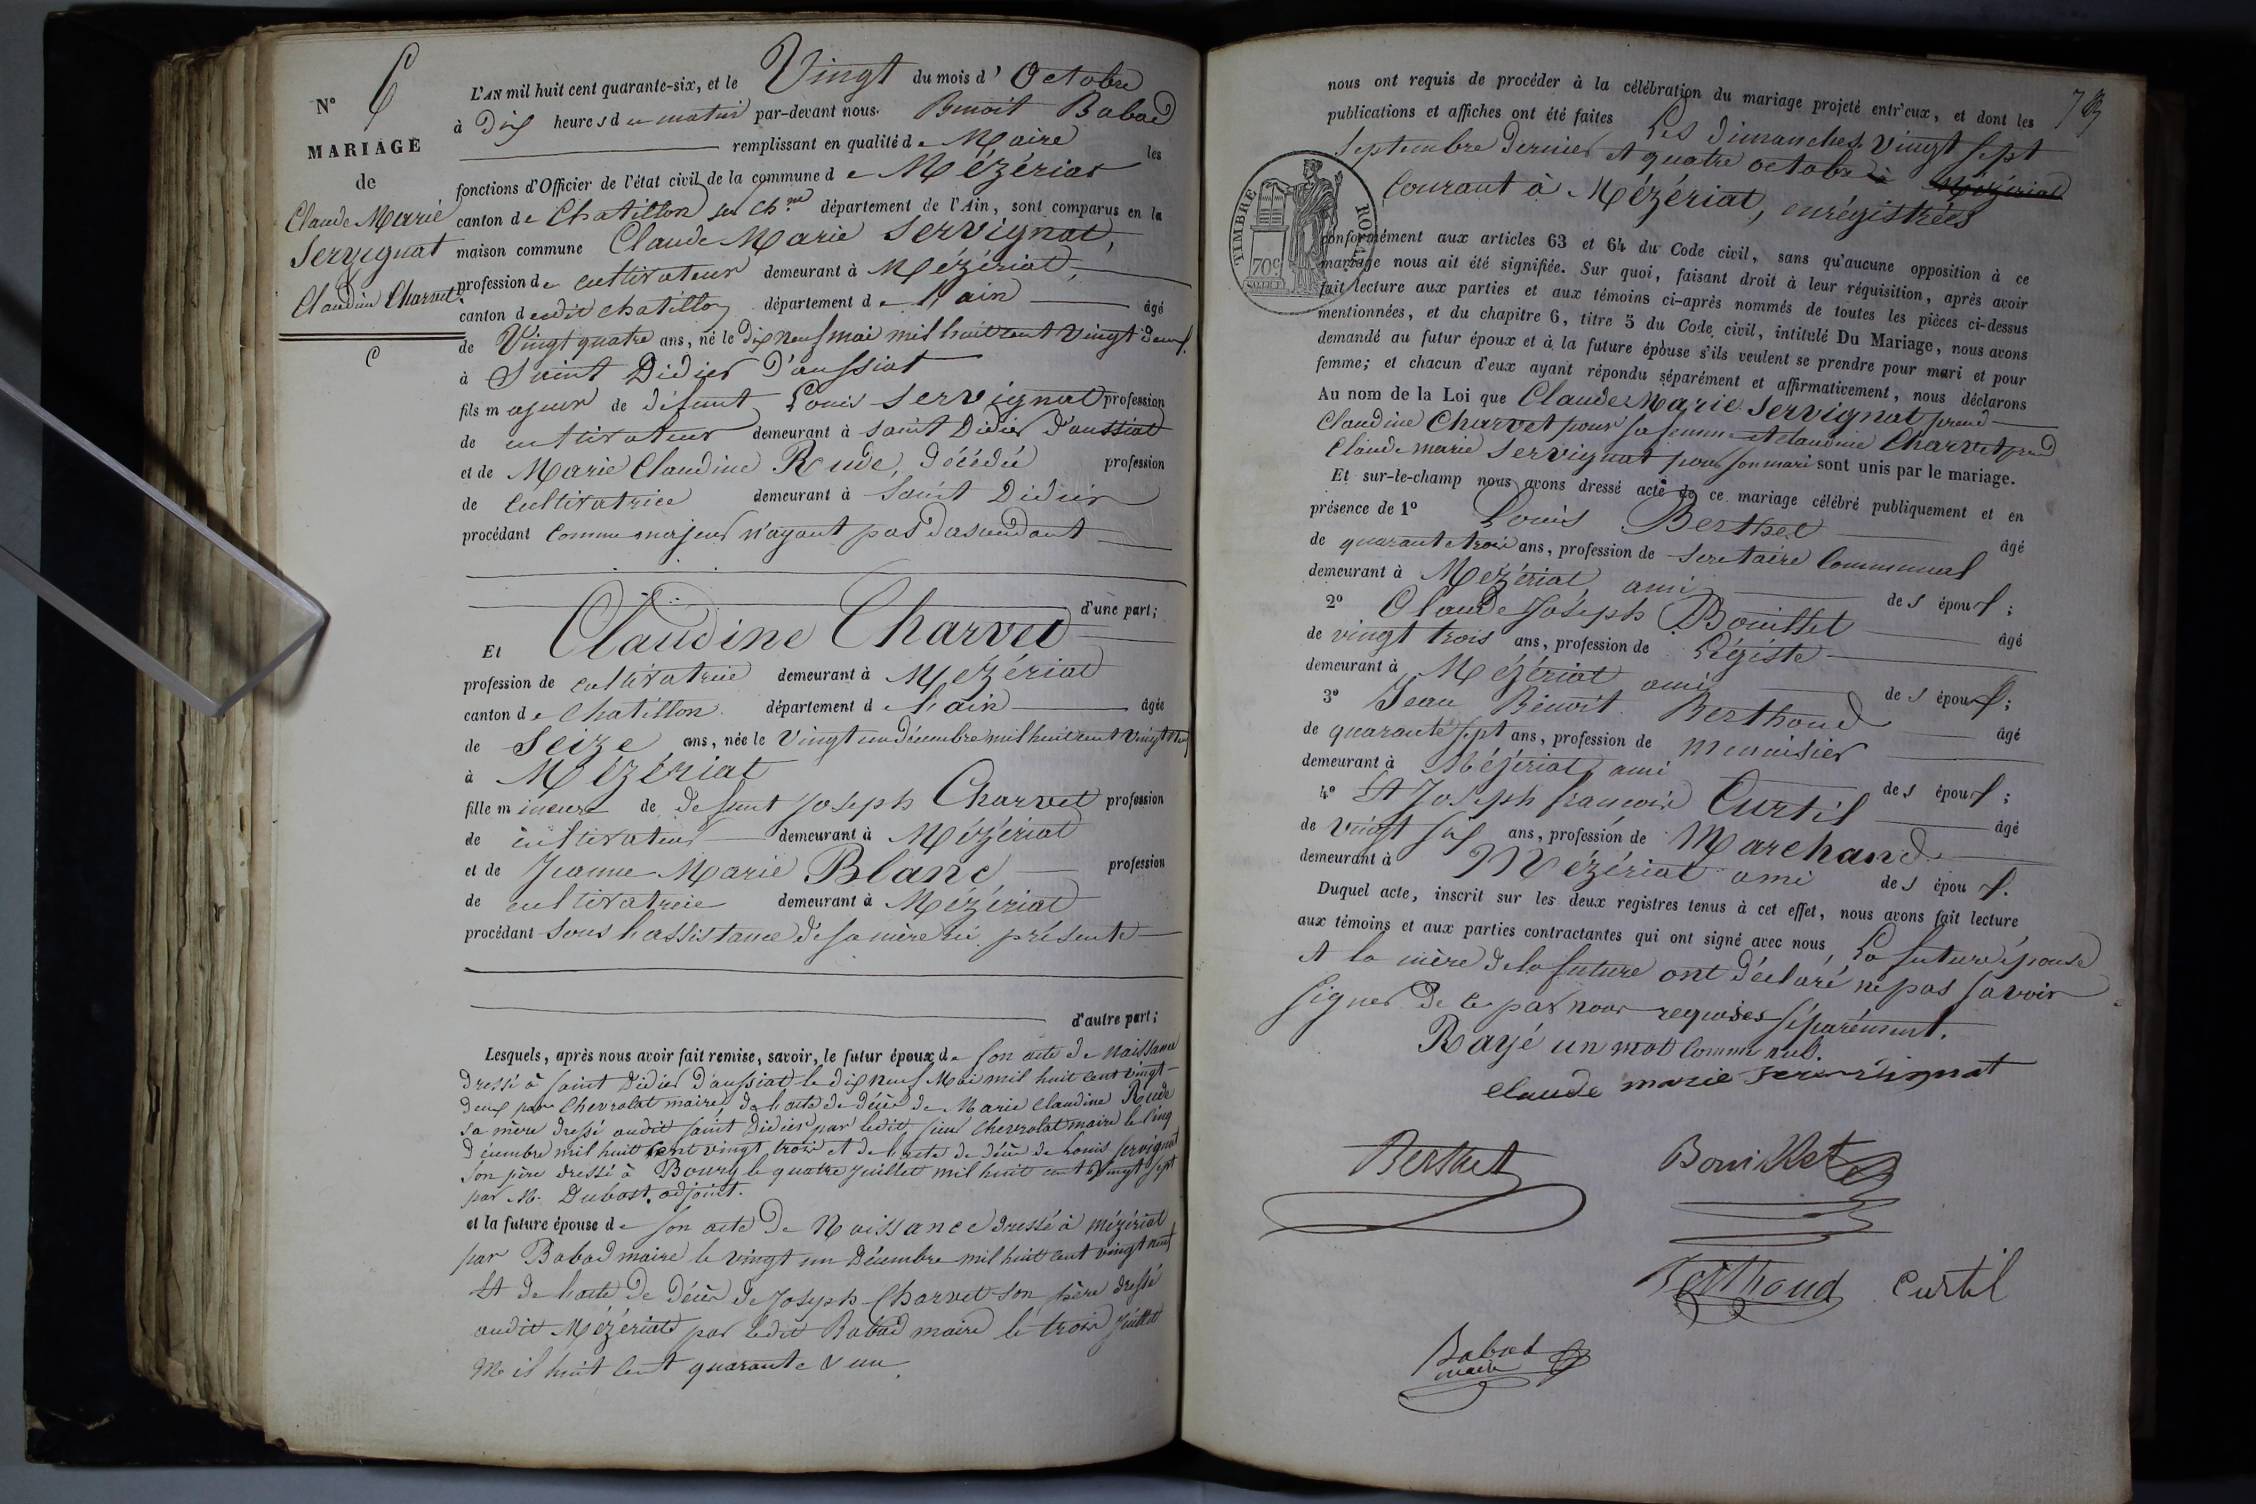 N° 6
MARIAGE
de
Claude Marie
Servignat
&
Claudine Charvet.
L'AN mil huit cent quarante-six, et le Vingt du mois d' Octobre
à Dix heures du matin par-devant nous. Benoit Babad
remplissant en qualité de Maire les
fonctions d'Officier de l'état civil de la commune de Mézériat
canton de Chatillon sur Ch.ne département de l'Ain, sont comparus en la
maison commune Claude Marie Servignat,
profession de cultivateur demeurant à Mézériat,
canton dudit chatillon département de l'ain âgé
de Vingt quatre ans, né le dix neuf mai mil huit cent vingt deux.
à Saint Didier d'aussiat
fils majeur de défunt Louis Servignat profession
de cultivateur demeurant à saint Didier d'aussiat
et de Marie Claudine Rude, décédée profession
de Cultivatrice demeurant à Saint Didier
procédant comme majeur n'ayant pas d'ascendant
d'une part;
Et Claudine Charvet
profession de cultivatrice demeurant à Mézériat
canton de Chatillon. département de l'ain âgée
de Seize ans, née le Vingt un décembre mil huit cent vingt neuf
à Mézériat
fille mineure de deffunt Joseph Charvet profession
de cultivateur demeurant à Mézériat
et de Jeanne Marie Blanc profession
de cultivatrice demeurant à Mézériat
procédant sous l'assistance de sa mère ici présente
d'autre part;
Lesquels, après nous avoir fait remise, savoir, le futur époux de son acte de Naissance
dressé à saint Didier d'aussiat le dix neuf Mai mil huit cent vingt-
deux par Chevrolat maire, de l'acte de décès de Marie Claudine Rude
sa mère dressé audit saint Didier par ledit sieur Chevrolat maire le cinq
décembre mil huit cent vingt trois et de l'acte de décès de Louis Servignat
son père dressé à Bourg le quatre juillet mil huit cent vingt sept
par M. Dubost, adjoint.
et la future épouse de son acte de Naissance dressé à mézériat
par Babad maire le vingt un Décembre mil huit cent vingt neuf
Et de l'acte de décès de Joseph Charvet son père dressé
audit Mézériat par ledit Babad maire le trois juillet
Mil huit cent quarante & un.
nous ont requis de procéder à la célébration du mariage projeté entr'eux, et dont les
publications et affiches ont été faites Les Dimanches Vingt sept
Septembre dernier et quatre octobre à Mézériat
Courant à Mézériat, enrégistrées
TIMBRE ROYAL
70c
conformément aux articles 63 et 64 du Code civil, sans qu'aucune opposition à ce
mariage nous ait été signifiée. Sur quoi, faisant droit à leur réquisition, après avoir
fait lecture aux parties et aux témoins ci-après nommés de toutes les pièces ci-dessus
mentionnées, et du chapitre 6, titre 5 du Code civil, intitulé Du Mariage, nous avons
demandé au futur époux et à la future épouse s'ils veulent se prendre pour mari et pour
femme; et chacun d'eux ayant répondu séparément et affirmativement, nous déclarons
Au nom de la Loi que Claude Marie Servignat prend
Claudine Charvet pour sa femme et Claudine Charvet prend
Claude marie Servignat pour son mari sont unis par le mariage.
Et sur-le-champ nous avons dressé acte de ce mariage célébré publiquement et en
présence de 1° Louis Berthet âgé
de quarante trois ans, profession de secretaire Communal
demeurant à Mézériat, ami des époux;
2° Claude Joseph Bouillet âgé
de vingt trois ans, profession de Légiste
demeurant à Mézériat ami des époux;
3° Jean Benoit Berthoud âgé
de quarante sept ans, profession de menuisier
demeurant à Mézériat, ami des époux;
4° Et Joseph françois Curtil âgé
de vingt six ans, profession de Marchand
demeurant à Mézériat ami des époux.
Duquel acte, inscrit sur les deux registres tenus à cet effet, nous avons fait lecture
aux témoins et aux parties contractantes qui ont signé avec nous La future épouse
et la mère de la future ont déclaré ne pas savoir
signer de ce par nous requises séparément.
Rayé un mot comme nul.
Claude marie Servignat
Berthet Bouillet
Berthoud Curtil
Babad
maire